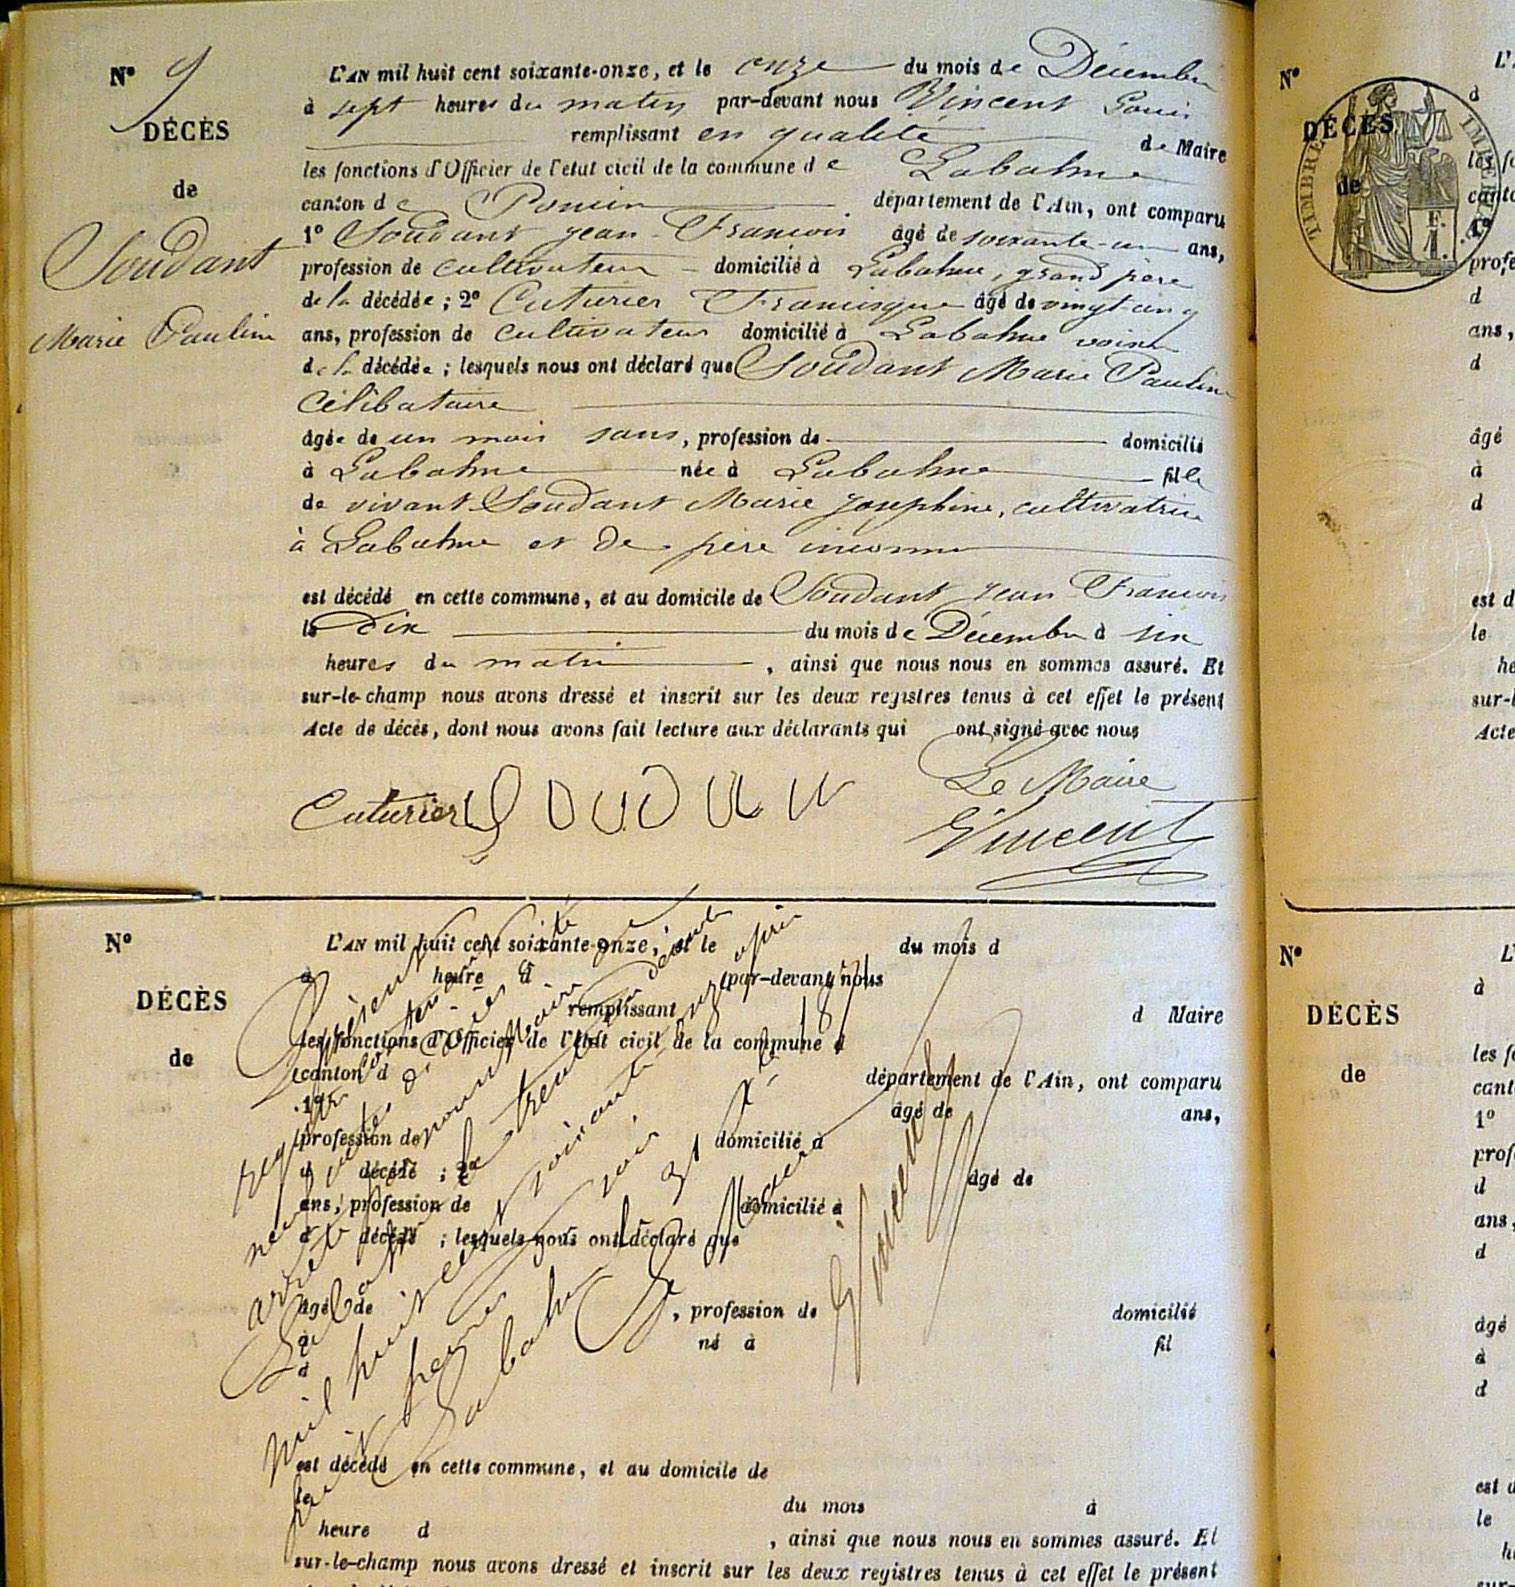 N° 9
DÉCÈS
de
Soudant
Marie Pauline
L'AN mil huit cent soixante-onze, et le onze du mois de Décembre
à sept heures du matin par-devant nous Vincent Louis
remplissant en qualité de Maire
les fonctions d'Officier de l'état civil de la commune de Labalme
canton de Poncin département de l'Ain, ont comparu
1° Soudant Jean-François âgé de soixante-un ans,
profession de cultivateur domicilié à Labalme, grand père
de la décédée ; 2° Cuturier Francisque âgé de vingt-cinq
ans, profession de cultivateur domicilié à Labalme voisin
de la décédée ; lesquels nous ont déclaré que Soudant Marie Pauline
Célibataire
âgée de un mois sans, profession de domicilié
à Labalme née à Labalme fille
de vivant Soudant Marie Josephine, cultivatrice
à Labalme et de père inconnu
est décédé en cette commune, et au domicile de Soudant Jean François
le Dix du mois de Décembre à six
heures du matin, ainsi que nous nous en sommes assuré. Et
sur-le-champ nous avons dressé et inscrit sur les deux registres tenus à cet effet le présent
Acte de décès, dont nous avons fait lecture aux déclarants qui ont signé avec nous
Le Maire
Cuturier SOUDAN Vincent
N°
DÉCÈS
de
L'AN mil huit cent soixante-onze, et le du mois d
à heure d par-devant nous
remplissant d Maire
les fonctions d'Officier de l'état civil de la commune d
canton d département de l'Ain, ont comparu
1° âgé de ans,
profession de domicilié à
d décédé ; 2° âgé de
ans, profession de domicilié à
d décédé ; lesquels nous ont déclaré que
âgé de , profession de domicilié
à né à fil
d
est décédé en cette commune, et au domicile de
le du mois à
heure d , ainsi que nous nous en sommes assuré. Et
sur-le-champ nous avons dressé et inscrit sur les deux registres tenus à cet effet le présent
Le présent
registre
neuf actes de décès a été
arrêté par nous Maire de
Labalme le trente un décembre
mil huit cent soixante onze après
heures du soir
Labalme le 31 Xbre 1871
Le Maire
Vincent
N°
DÉCÈS
de
TIMBRE IMPERIAL
L'A
d
les fo
canto
1°
profe
d
ans,
d
âgé
à
d
est d
le
he
sur-l
Acte
N°
DÉCÈS
de
L'
à
les fo
cant
1°
prof
d
ans,
d
âgé
à
d
est d
le
h
sur-